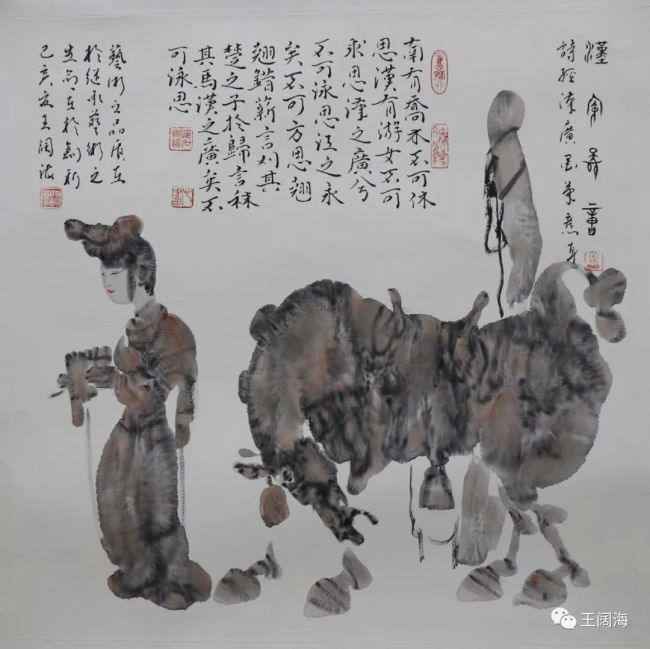 詩經漢廣
南有喬木不可休
思漢有游女不可
求思漢之廣兮
不可泳思江之永
矣不可方思翹
翹錯薪言刈其
楚之子於歸言秣
其馬漢之廣矣不
可泳思
藝術之品质在
於继承藝術之
生命在於創新
己亥夏王阔海
王阔海